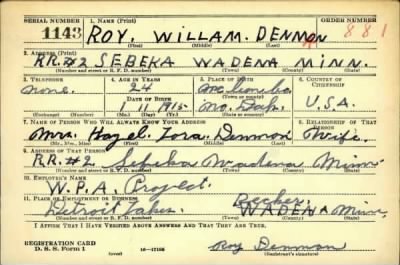 SERIAL NUMBER 1. NAME (Print) ORDER NUMBER
1143 ROY. WILLAM. DENMON 881
(First) (Middle) (Last)
2. ADDRESS (Print)
RR.#2 SEBEKA WADENA MINN.
(Number and street or R. F. D. number) (Town) (County) (State)
3. TELEPHONE 4. AGE IN YEARS 5. PLACE OF BIRTH 6. COUNTRY OF CITIZENSHIP
none. 24
DATE OF BIRTH (Town or county)
1 11 1915 No. Dak. U.S.A.
(Exchange) (Number) (Mo.) (Day) (Yr.) (State or country)
7. NAME OF PERSON WHO WILL ALWAYS KNOW YOUR ADDRESS 8. RELATIONSHIP OF THAT PERSON
Mrs. Hazel. Denmon Wife.
(Mr., Mrs., Miss) (First) (Middle) (Last)
9. ADDRESS OF THAT PERSON
RR.#2. Sebeka Wadena Minn
(Number and street or R. F. D. number) (Town) (County) (State)
10. EMPLOYER'S NAME
W.P.A. Project.
11. PLACE OF EMPLOYMENT OR BUSINESS Becker.
Detroit Lakes WADENA Minn
(Number and street or R. F. D. number) (Town) (County) (State)
I AFFIRM THAT I HAVE VERIFIED ABOVE ANSWERS AND THAT THEY ARE TRUE.
REGISTRATION CARD
D. S. S. Form 1 (over) 16-17105 Roy Denmon
(Registrant's signature)